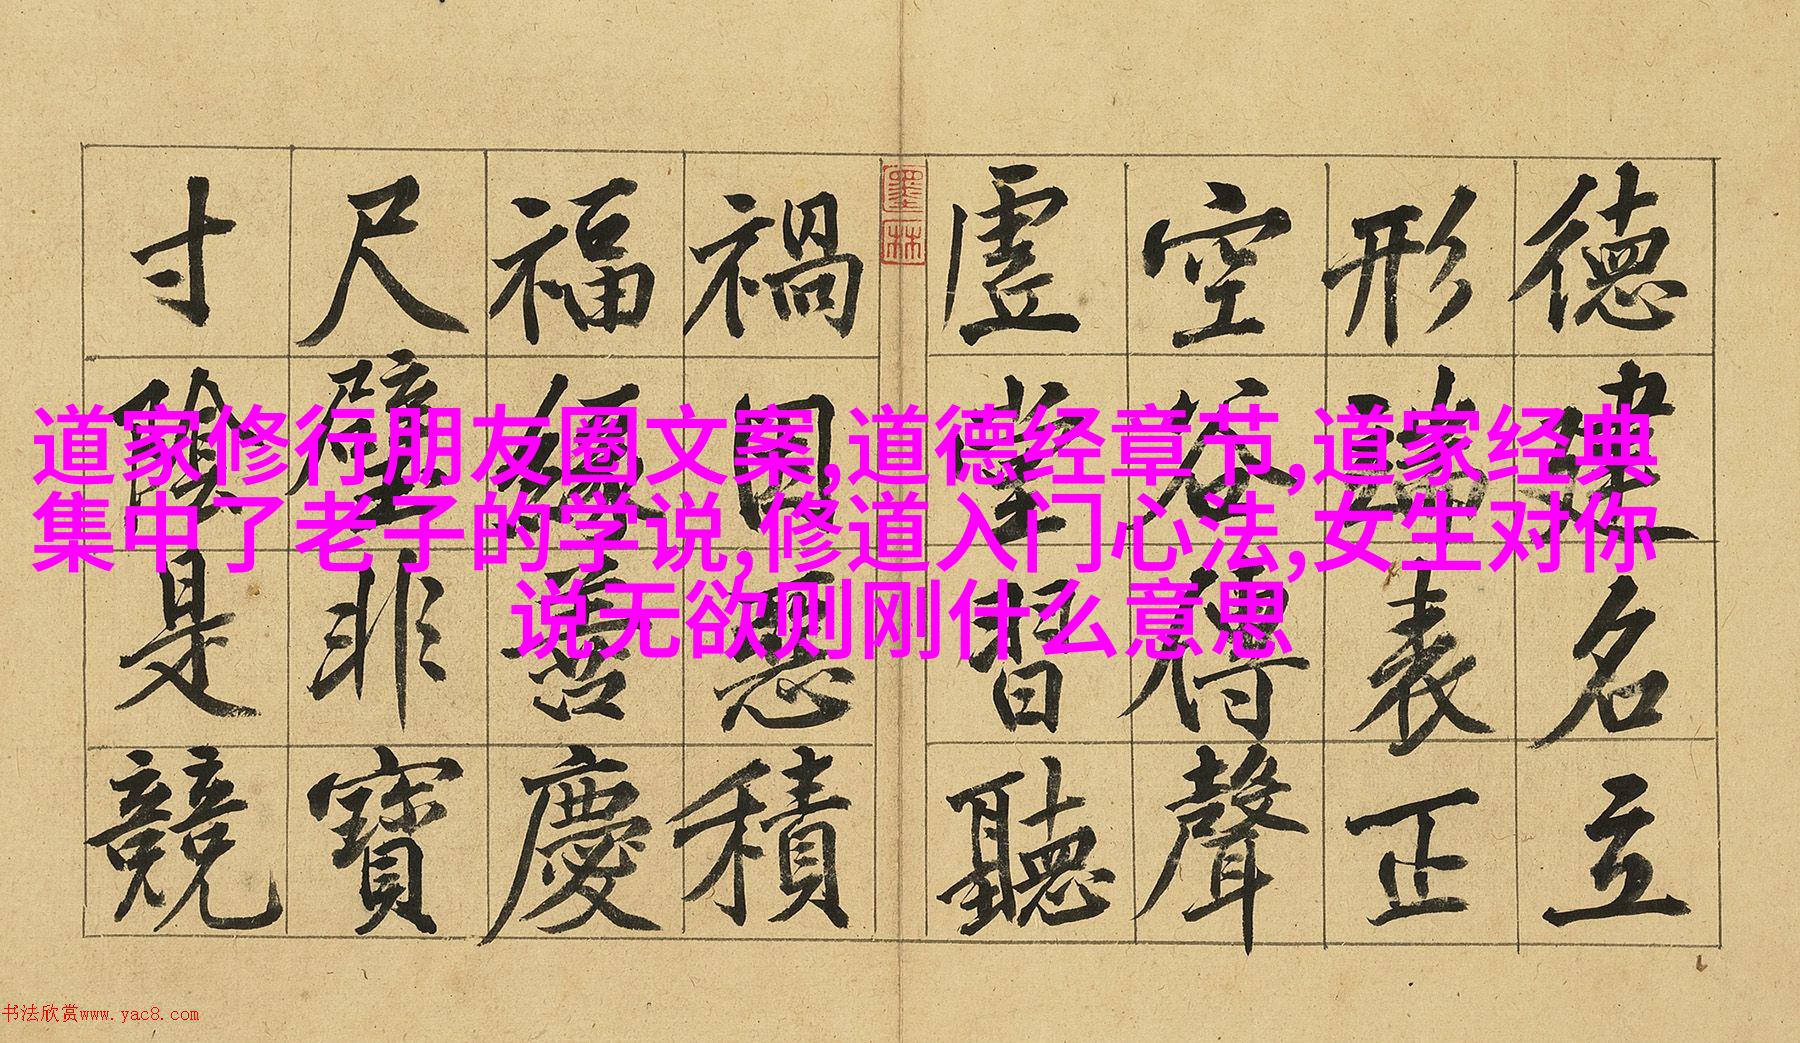 道家修行朋友圈文案,道德经章节,道家经典
集中了老子的学说,修道入门心法,女生对你
说无欲则刚什么意思
德建名立
形端表正
空谷傳聲
虛堂習聽
墨林
禍因惡積
福緣善慶
尺璧非寶
寸陰是競
书法欣赏www.yac8.com